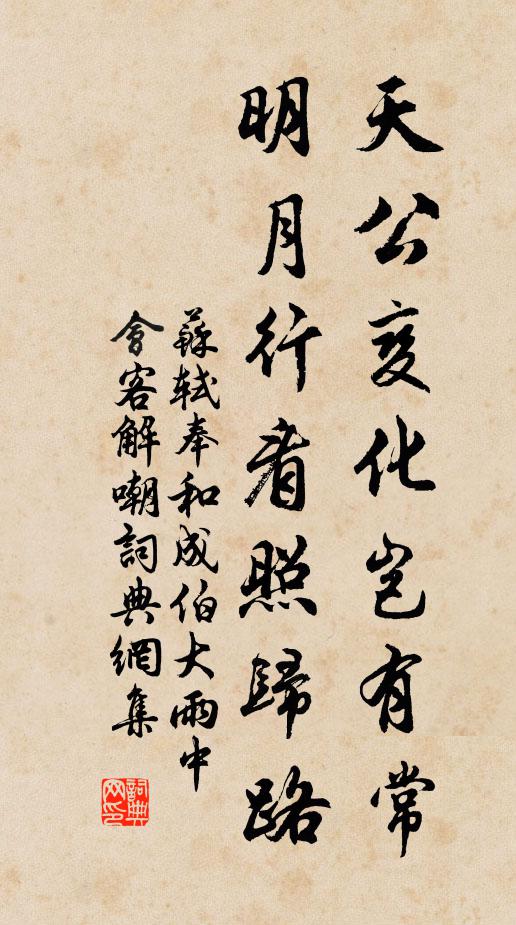 天公變化豈有常
明月行看照歸路
蘇軾奉和成伯大雨中
會客解嘲詞典網集
詞典
网印